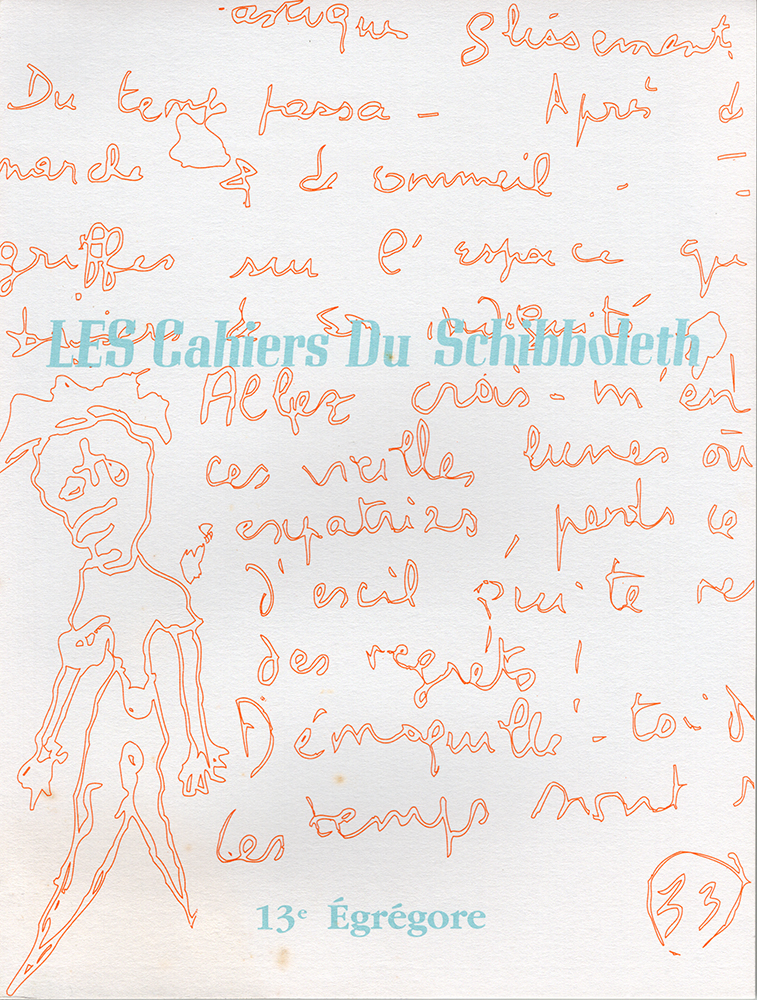 Glissement
Du temps passa - Après d
marche & de ommeil -
griffes sur l'espace qu
LES Cahiers Du Schibboleth
Allez crois-m'en
ces vieilles lunes où
expatriés, perds ce
d'escil qui te re
des regrets !
Démaquille-toi d
les temps sont
13e Égrégore
33